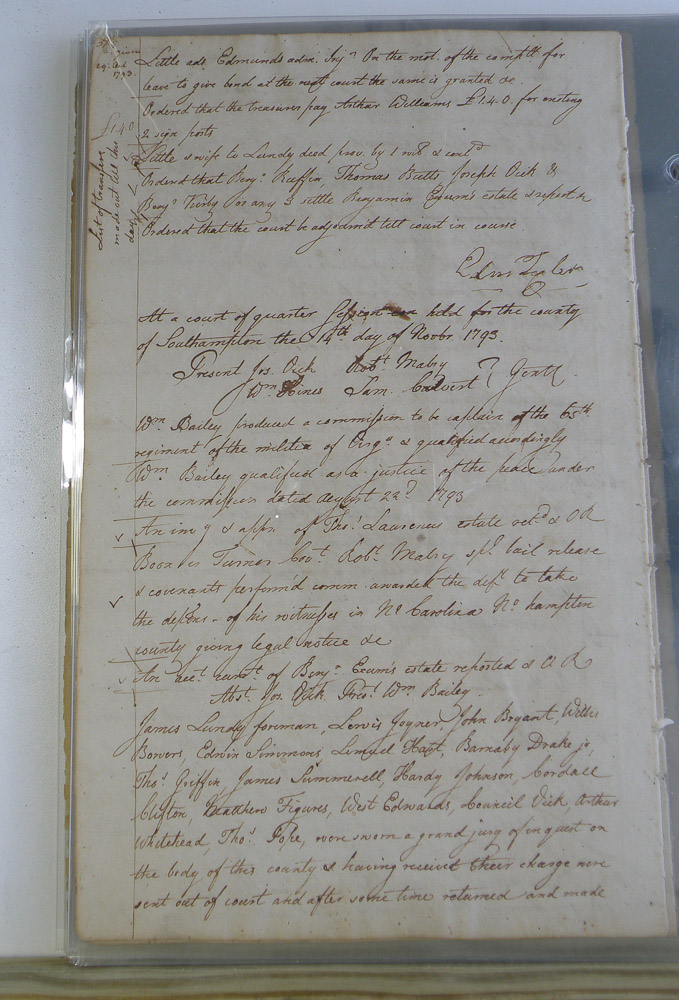 given
29. Oct
1793
Little ads. Edmunds adm. Injn. On the mot. of the complt. for
leave to give bond at the next court the same is granted &c
£1.4.0
Ordered that the treasurer pay Arthur Williams £1.4.0. for erecting
2 sign posts
Little & wife to Lundy deed prov. by 1 witt & contd
Ordered that Benjn. Ruffin Thomas Butts Joseph Vick &
Benjn. Kirby or any 3 settle Benjamin Exum's estate & report &
Ordered that the court be adjourn'd till court in course.
List of transfers
made out till this
day
At a court of quarter Session held for the county
of Southampton the 14th day of Novbr. 1793.
Present Jos. Vick Robt. Mabry
Wm. Hines Sam. Calvert Gentl.
Wm. Bailey produced a commission to be captain of the 65th
regiment of the militia of Virga. & qualified accordingly
Wm. Bailey qualified as a justice of the peace under
the commission dated august 22d 1793
An invy & appr. of Thos. Laurence's estate retd. & OR
Boon vs Turner Covt. Robt. Mabry spl. bail release
& covenants perform'd comm. awarded the deft. to take
the depons. of his witnesses in No. Carolina No. hampton
county giving legal notice &c
An acct. currt. of Benjn. Exum's estate reported & O R
Abst. Jos. Vick Prest. Wm. Bailey.
James Lundy foreman, Lewis Joyner, John Bryant, Willis
Bowers, Edwin Simmons, Lemuel Hart, Barnaby Drake jr,
Thos. Griffin, James Summerell, Hardy Johnson, Cordall
Clifton, Matthew Figures, West Edwards, Council Vick, Arthur
Whitehead, Thos. Pope, were sworn a grand jury of inquest on
the body of this county & having received their charge were
sent out of court and after some time returned and made